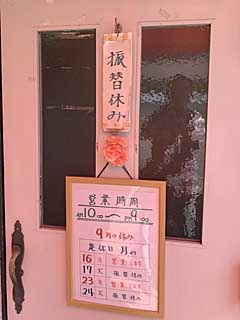 振替休み
営業時間
AM 10:00 〜 PM 9:00
9月の休み
定休日 月の
16 月 営業します
17 火 振替休み
23 月 営業します
24 火 振替休み